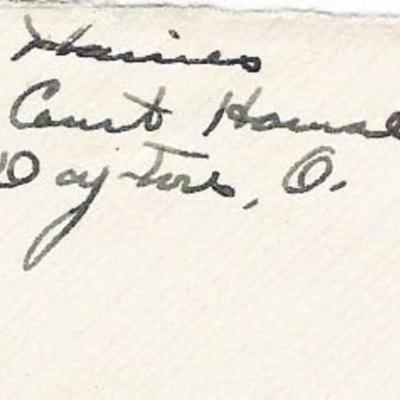 Haines
Court House
Dayton, O.